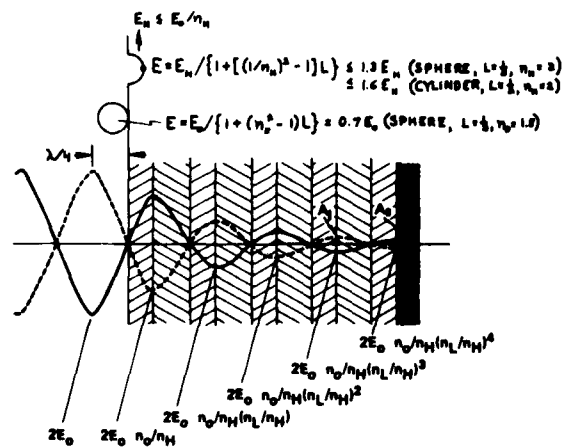 E_H ≤ E_0/n_H
E = E_H/{1+[(1/n_H)² − 1]L} ≤ 1.3 E_H (SPHERE, L=⅓, n_H=2)
≤ 1.6 E_H (CYLINDER, L=½, n_H=2)
E = E_0/{1+(n_p² − 1)L} = 0.7E_0 (SPHERE, L=⅓, n_p=1.5)
λ/4
2E_0 n_0/n_H(n_L/n_H)⁴
2E_0 n_0/n_H(n_L/n_H)³
2E_0 n_0/n_H(n_L/n_H)²
2E_0 n_0/n_H(n_L/n_H)
2E_0 n_0/n_H
2E_0